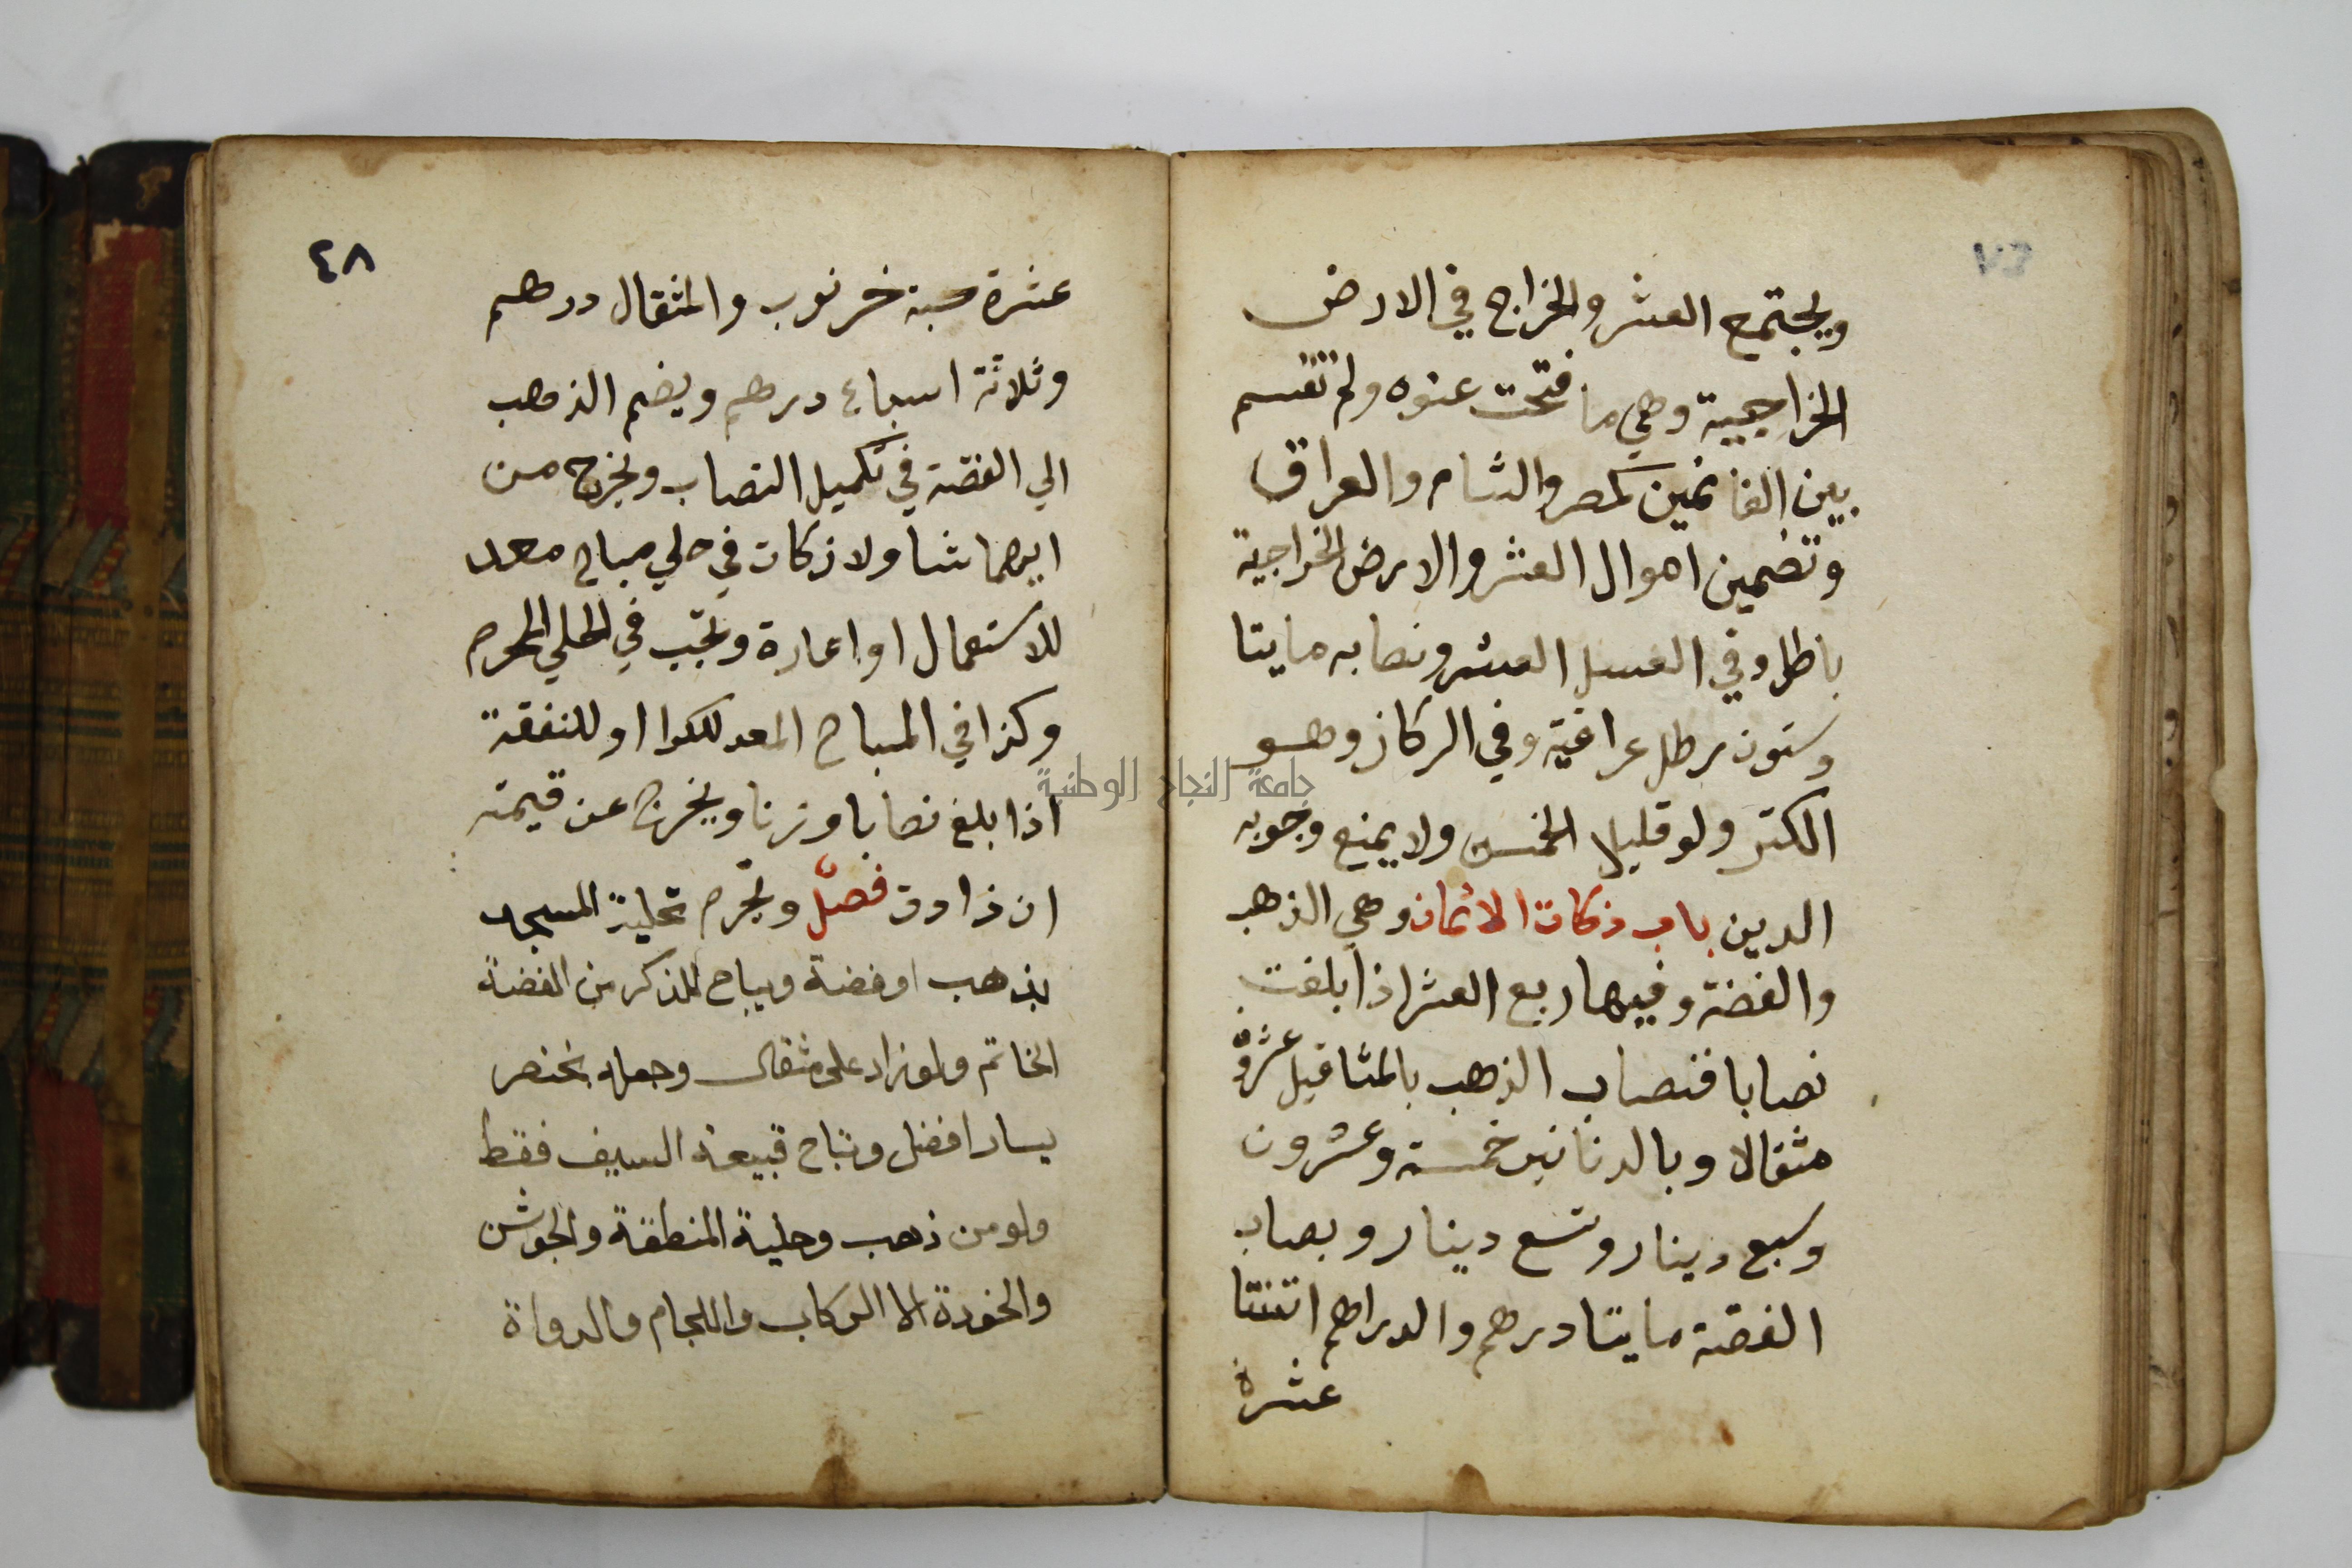 ويجتمع العشر والخراج في الارض
الخراجية وهي ما فتحت عنوه ولم تقسم
بين الغانمين كمصر والشام والعراق
وتضمين اموال العشر والارض الخراجية
باطل وفي العسل العشر ونصابه مايتا
وستون رطل عراقية وفي الركاز وهو
الكنز ولو قليلا الخمس ولا يمنع وجوبه
الدين باب زكات الاثمان وهي الذهب
والفضة وفيها ربع العشر اذا بلغت
نصابا فنصاب الذهب بالمثاقيل عشرون
مثقالا وبالدنانير خمسة وعشرون
وسبع دينار وتسع دينار ونصاب
الفضة مايتا درهم والدراهم اثنتا
عشرة
٤٨
عشرة حبة خرنوب والمثقال درهم
وثلاثة اسباع درهم ويضم الذهب
الي الفضة في تكميل النصاب ويخرج من
ايهما شا ولا زكات في حلي مباح معد
للاستعمال او اعارة وتجب في الحلي المحرم
وكذا في المباح المعد للكرا او للنفقة
اذا بلغ نصابا وزنا ويخرج عن قيمته
ان زادت فصل وتحرم تحلية المسجد
بذهب او فضة ويباح للذكر من الفضة
الخاتم ولو زاد علي مثقال وجعله بخنصر
يسار افضل وتباح قبيعة السيف فقط
ولو من ذهب وحلية المنطقة والجوشن
والخودة لا الركاب واللجام والدواة
جامعة النجاح الوطنية